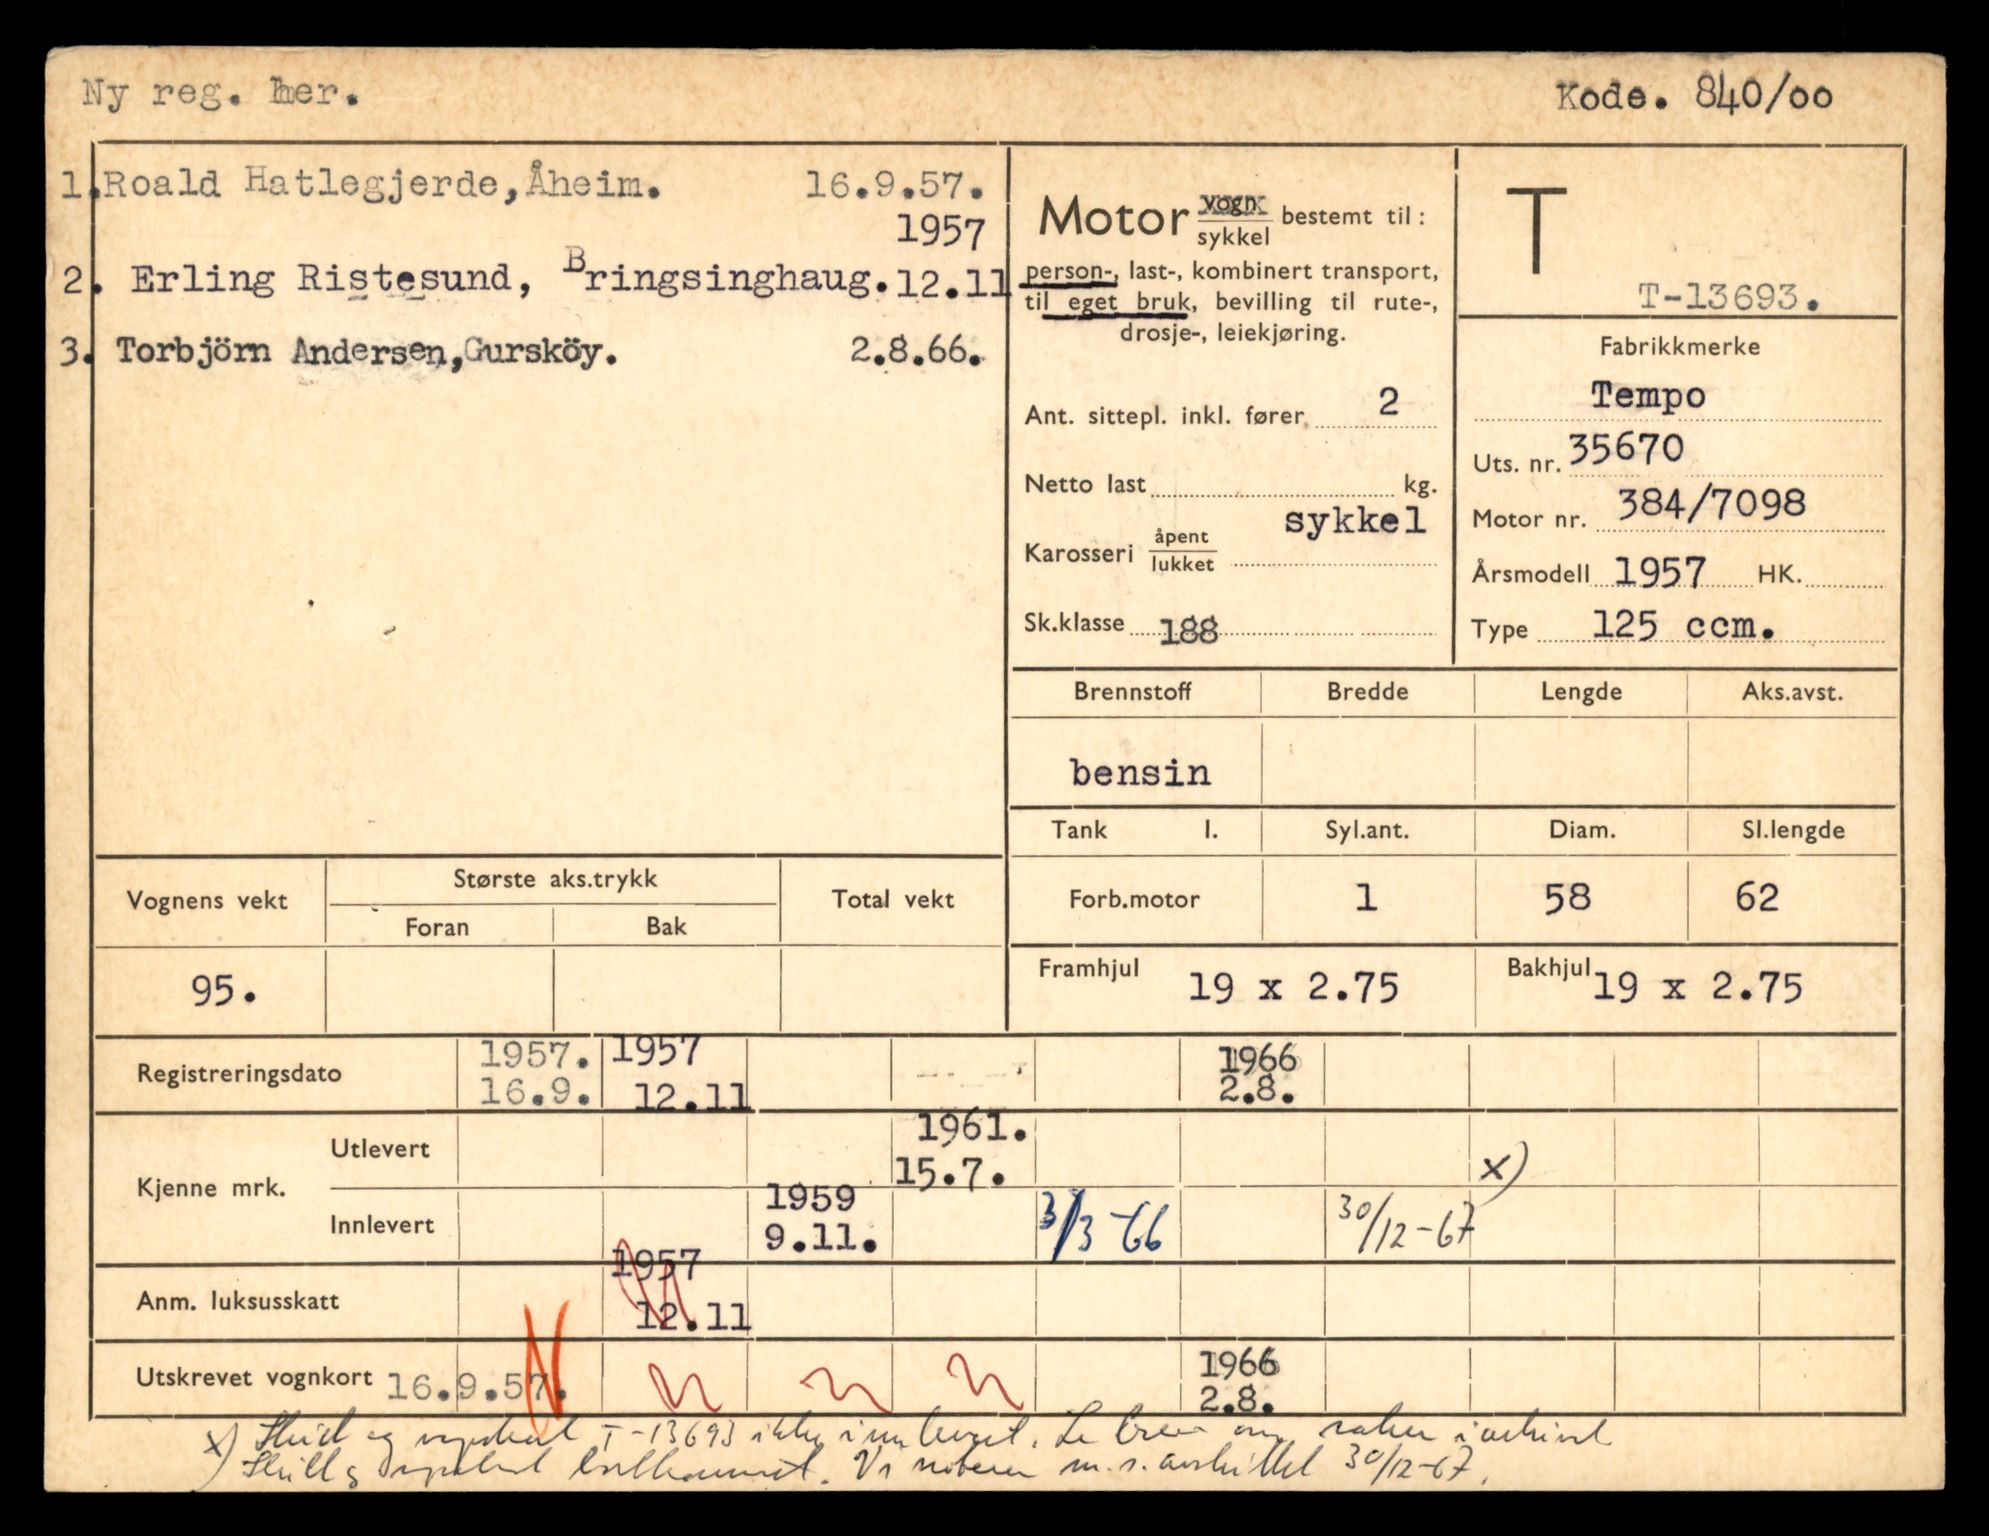 Ny reg. her.
Kode. 840/00
1. Roald Hatlegjerde, Åheim. 16.9.57.
1957
2. Erling Ristesund, Bringsinghaug. 12.11
3. Torbjörn Andersen, Gursköy. 2.8.66.
Motor vogn sykkel bestemt til :
person-, last-, kombinert transport,
til eget bruk, bevilling til rute-,
drosje-, leiekjøring.
Ant. sittepl. inkl. fører 2
Netto last kg.
Karosseri åpent lukket sykkel
Sk.klasse 188
T
T-13693.
Fabrikkmerke
Tempo
Uts. nr. 35670
Motor nr. 384/7098
Årsmodell 1957 HK.
Type 125 ccm.
Brennstoff Bredde Lengde Aks.avst.
bensin
Tank l. Syl.ant. Diam. Sl.lengde
Forb.motor 1 58 62
Framhjul 19 x 2.75 Bakhjul 19 x 2.75
Vognens vekt Største aks.trykk Total vekt
Foran Bak
95.
Registreringsdato 1957. 16.9. 1957 12.11 1966 2.8.
Kjenne mrk.
Utlevert 1961. 15.7. x)
Innlevert 1959 9.11. 3/3-66 30/12-67
Anm. luksusskatt 1957 12.11
Utskrevet vognkort 16.9.57. 1966 2.8.
x) Skilt og vognkort T-13693 ikke innlevert. Se brev om saken i arkivet
x) Skilt og vognkort bortkommet. Vi noterer m.s. avskiltet 30/12-67.